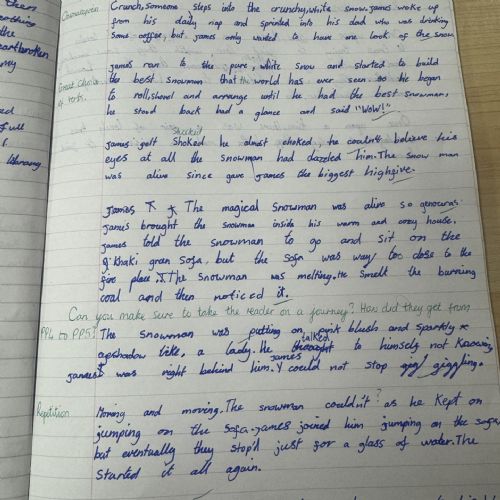 then
the
eartbroken
my
ed
full
literacy
Onomatopoeia
Crunch, someone steps into the crunchy, white snow. James woke up
from his daily nap and sprinted into his dad who was drinking
some coffee, but james only wanted to have one look of the snow.
james ran to the pure, white snow and started to build
Great choice of verbs.
the best snowman that the world has ever seen. so he began
to roll, shovel and arrange until he had the best snowman,
he stood back had a glance and said "WOW!"
shocked
james felt shoked he almst choked, he couldn't believe his
eyes at all the snowman had dazzled him. The snow man
was alive since gave james the biggest highgive.
James The magical snowman was alive so generous.
james brought the snowman inside his warm and cozy house.
james told the snowman to go and sit on the
khaki gran sofa, but the sofa was way too close to the
fire place. The snowman was melting. He smelt the burning
coal and then noticed it.
Can you make sure to take the reader on a journey? How did they get from
PP4 to PP5?
The snowman was putting on pink blush and sparkly
apshadow like, a lady. He talked to himsely not knowing
james was right behind him. james could not stop giggling.
Repetition
Moving and moving. The snowman couldn't? as he kept on
jumping on the sofa. james joined him jumping on the sofa,
but eventually they stop'd just for a glass of water. The
started it all again.